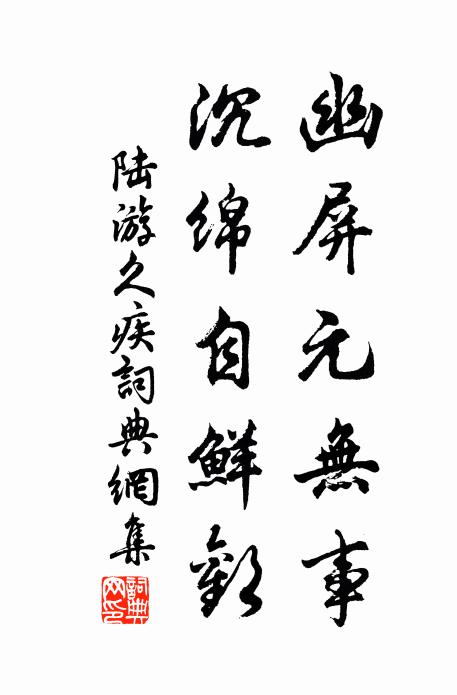 幽屏元無事
沉绵自鮮歡
陆游久疾詞典網集
詞典网印